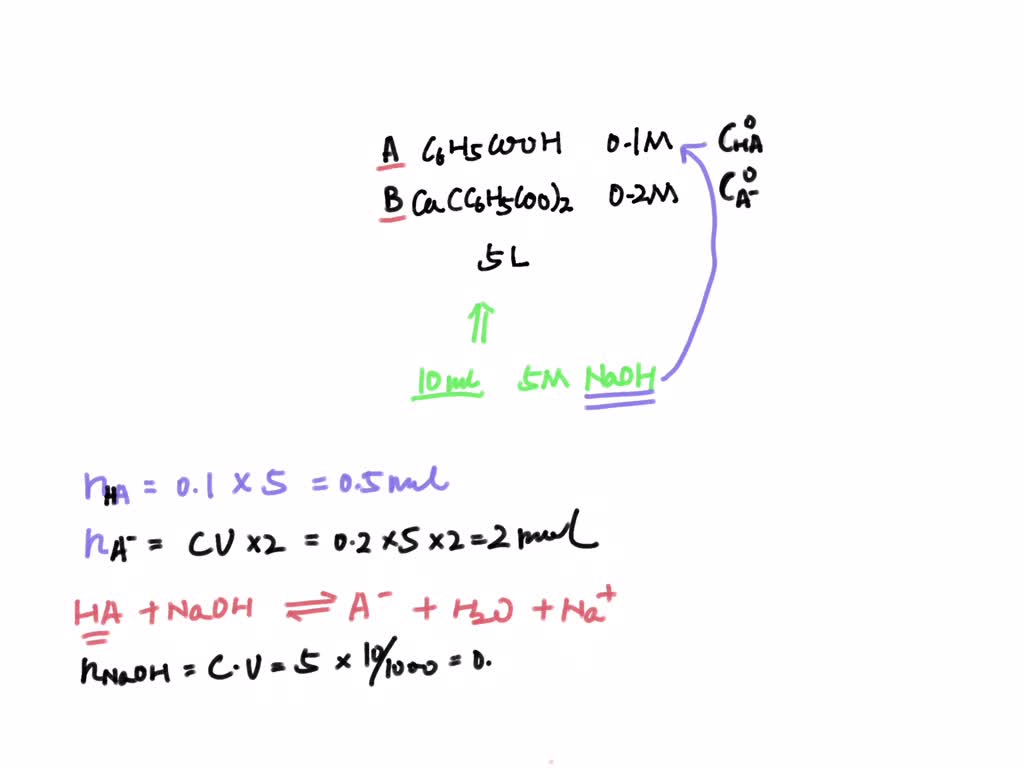 A C6H5COOH 0.1M C°HA
B Ca(C6H5COO)2 0.2M C°A-
5L
10ml 5M NaOH
nHA = 0.1 × 5 = 0.5 mol
nA- = CV ×2 = 0.2 ×5 ×2 = 2 mol
HA + NaOH ⇌ A- + H2O + Na+
nNaOH = C·V = 5 × 10/1000 = 0.